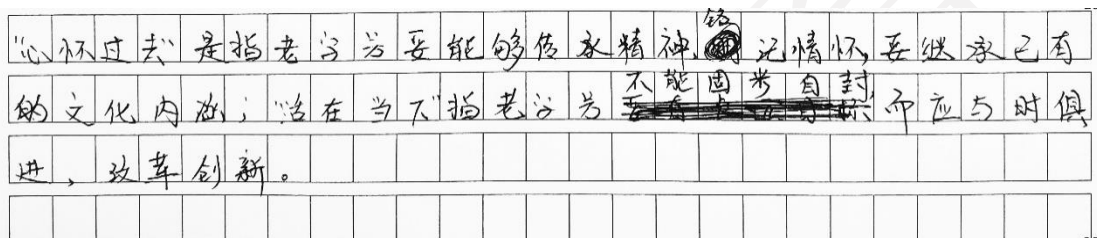 “心怀过去”是指老字号要能够传承精神、铭记情怀,要继承已有
的文化内涵；“活在当下”指老字号不能固步自封,而应与时俱
进，改革创新。